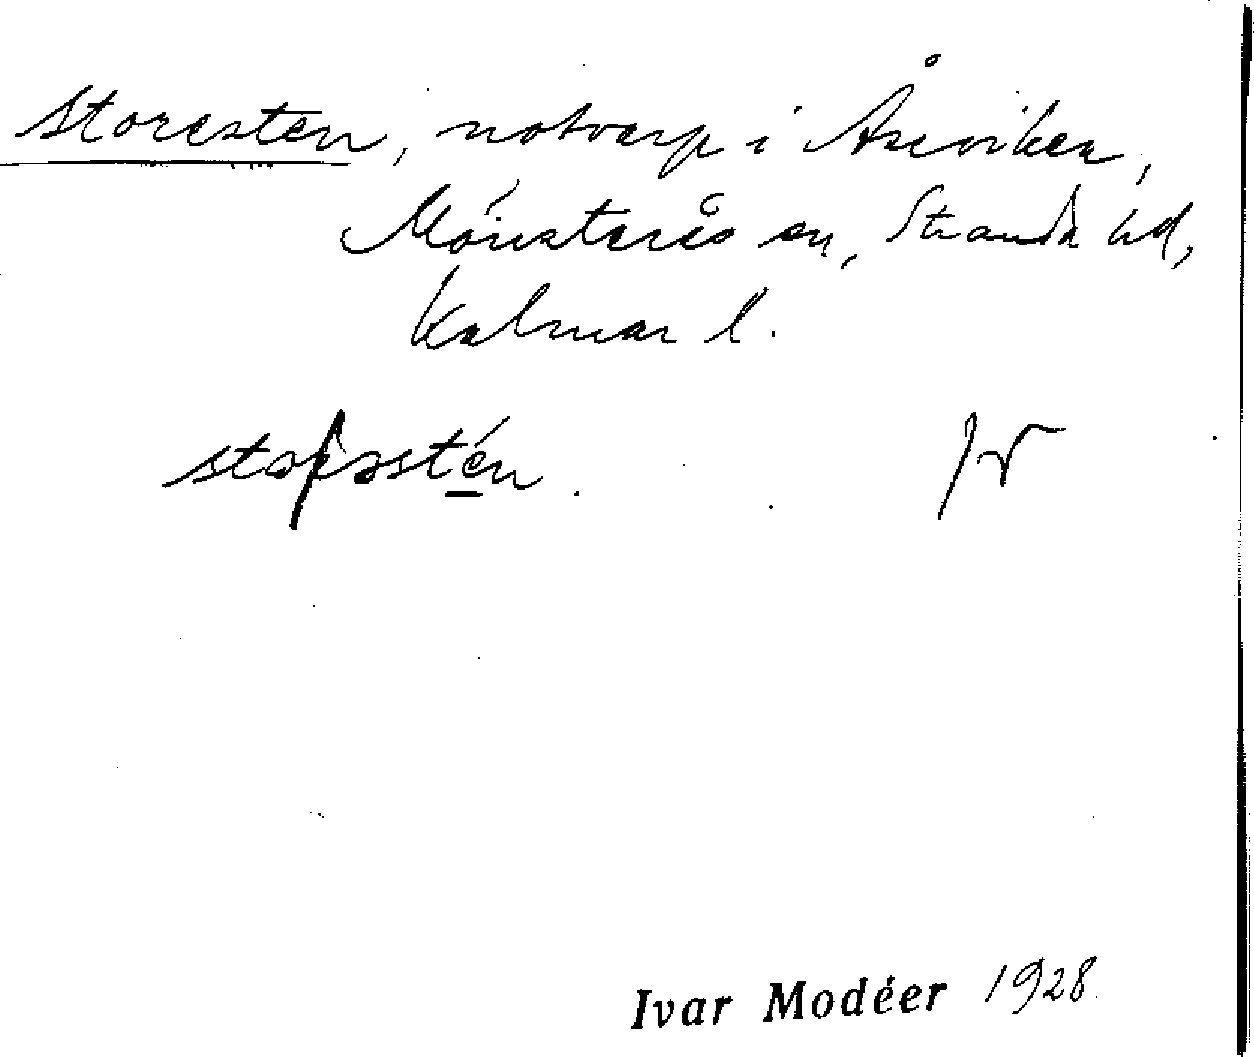 Storesten, notvarp i Åseviken,
Mönsterås sn, Stranda hd,
Kalmar l.
Ivar Modéer 1928.